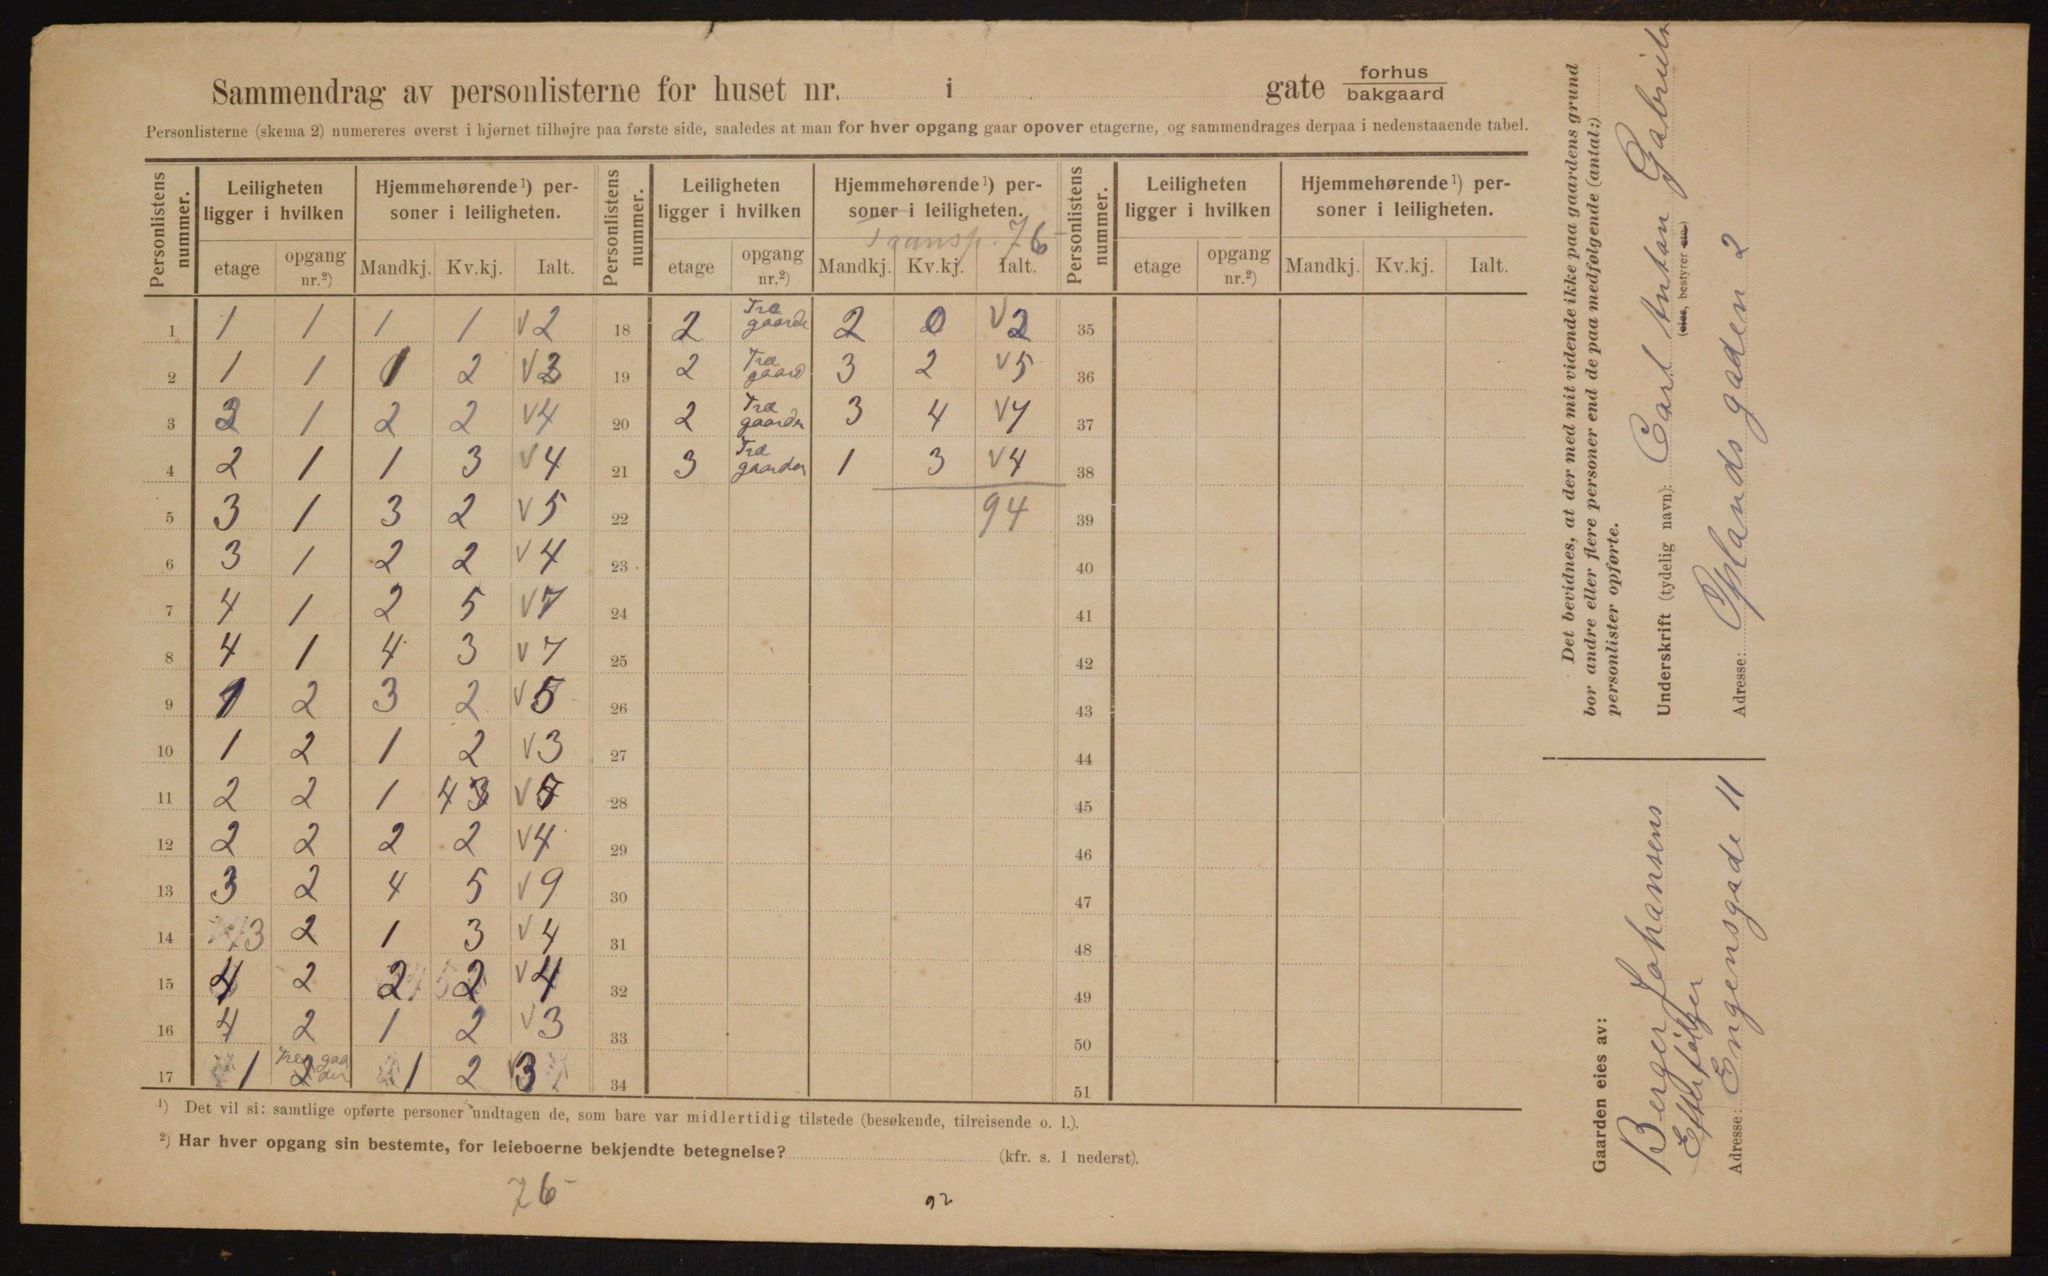 Sammendrag av personlisterne for huset nr. i gate forhus bakgaard
Personlisterne (skema 2) numereres øverst i hjørnet tilhøjre paa første side, saaledes at man for hver opgang gaar opover etagerne, og sammendrages derpaa i nedenstaaende tabel.
Personlistens nummer. Leiligheten ligger i hvilken Hjemmehørende¹) personer i leiligheten. Personlistens nummer. Leiligheten ligger i hvilken Hjemmehørende¹) personer i leiligheten. Personlistens nummer. Leiligheten ligger i hvilken Hjemmehørende¹) personer i leiligheten.
Transp. 76
etage opgang nr.²) Mandkj. Kv.kj. Ialt. etage opgang nr.²) Mandkj. Kv.kj. Ialt. etage opgang nr.²) Mandkj. Kv.kj. Ialt.
1 1 1 1 1 V2 18 2 Træ gaarde 2 0 V2 35
2 1 1 1 2 V3 19 2 Træ gaard 3 2 V5 36
3 2 1 2 2 V4 20 2 Træ gaarden 3 4 V7 37
4 2 1 1 3 V4 21 3 Træ gaarden 1 3 V4 38
5 3 1 3 2 V5 22 94 39
6 3 1 2 2 V4 23 40
7 4 1 2 5 V7 24 41
8 4 1 4 3 V7 25 42
9 1 2 3 2 V5 26 43
10 1 2 1 2 V3 27 44
11 2 2 1 4 V5 28 45
12 2 2 2 2 V4 29 46
13 3 2 4 5 V9 30 47
14 3 2 1 3 V4 31 48
15 4 2 2 2 V4 32 49
16 4 2 1 2 V3 33 50
17 1 2 1 2 V3 34 51
¹) Det vil si: samtlige opførte personer undtagen de, som bare var midlertidig tilstede (besøkende, tilreisende o. l.).
²) Har hver opgang sin bestemte, for leieboerne bekjendte betegnelse? (kfr. s. 1 nederst).
76
92
Det bevidnes, at der med mit vidende ikke paa gaardens grund
bor andre eller flere personer end de paa medfølgende (antal:)
personlister opførte.
Underskrift (tydelig navn): Carl Anton
(eier, bestyrer etc)
Adresse: Oplandsgaden 2
Gaarden eies av:
Berger Johansens
Efterfölger
Adresse: Engensgade 11